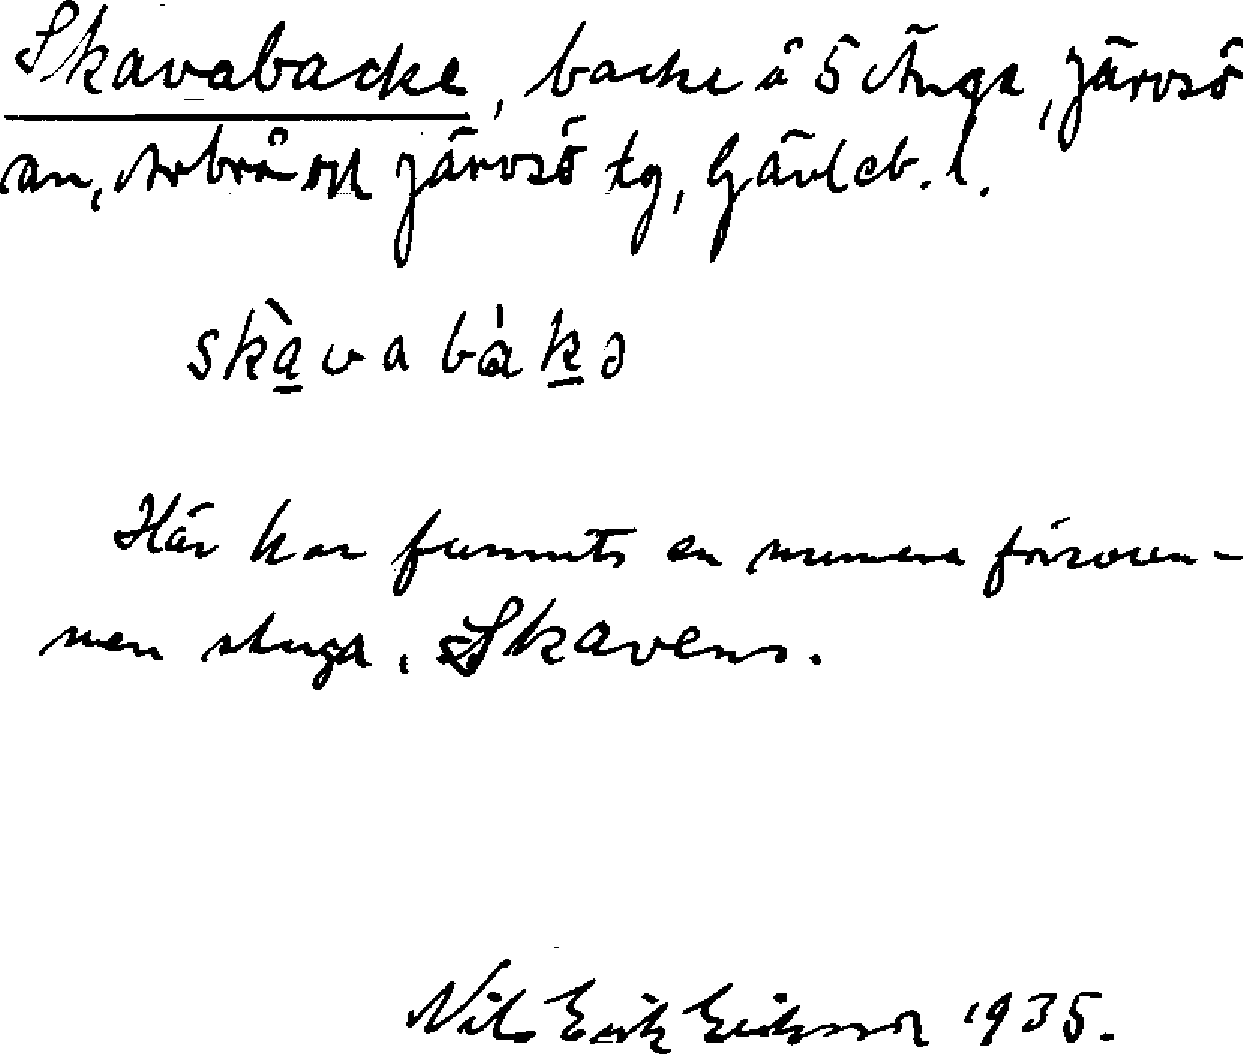 Skavabacke, backe å 5 Änga, Järvsö
sn, Arbrå och Järvsö tg, Gävleb. l.
skàvabákə
Här har funnits en numera försvun-
nen stuga, Skavens.
Nils Erik Eriksson 1935.